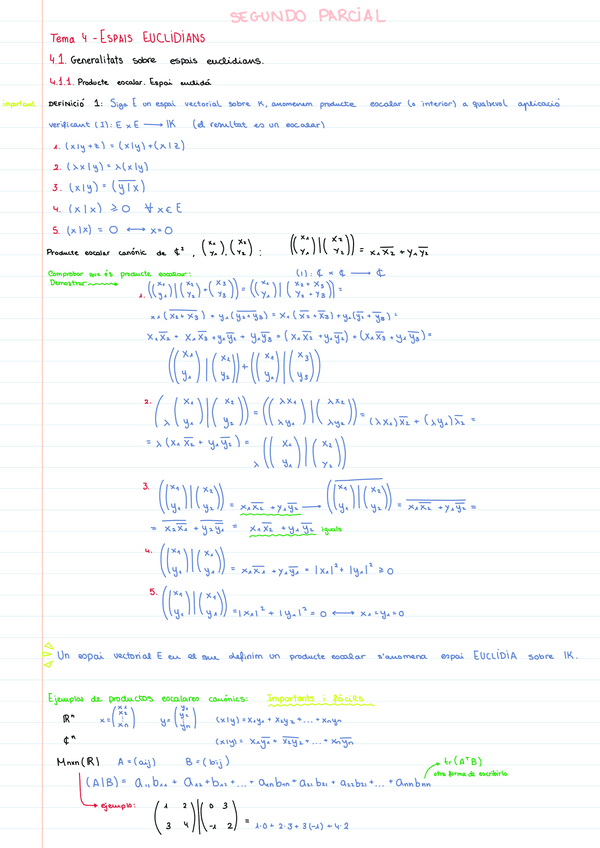 SEGUNDO PARCIAL
Tema 4 - ESPAIS EUCLIDIANS
4.1. Generalitats sobre espais euclidians.
4.1.1. Producte escalar. Espai euclidià
important DEFINICIÓ 1: Sigo E un espai vectorial sobre K, anomenem producte escalar (o interior) a qualsevol aplicació
verificant (I): E x E ⟶ IK (el resultat es un escalar)
1. (x|y+z) = (x|y)+(x|z)
2. (λx|y) = λ(x|y)
3. (x|y) = \overline{(y|x)}
4. (x|x) ⩾ 0 ∀ x∈E
5. (x|x) = 0 ⟷ x=0
Producte escalar canònic de ℂ², (x₁ y₁), (x₂ y₂) : ((x₁ y₁)|(x₂ y₂)) = x₁\overline{x₂} + y₁\overline{y₂}
Comprobar que és producte escalar: (I): ℂ x ℂ ⟶ ℂ
Demostrar
1. ((x₁ y₁)|(x₂ y₂)+(x₃ y₃)) = ((x₁ y₁)|(x₂+x₃ y₂+y₃)) =
x₁(\overline{x₂+x₃}) + y₁(\overline{y₂+y₃}) = x₁(\overline{x₂}+\overline{x₃}) + y₁(\overline{y₂}+\overline{y₃}) =
x₁\overline{x₂} + x₁\overline{x₃} + y₁\overline{y₂} + y₁\overline{y₃} = (x₁\overline{x₂} + y₁\overline{y₂}) + (x₁\overline{x₃} + y₁\overline{y₃}) =
((x₁ y₁)|(x₂ y₂)) + ((x₁ y₁)|(x₃ y₃))
2. (λ(x₁ y₁)|(x₂ y₂)) = ((λx₁ λy₁)|(λx₂ λy₂)) = (λx₁)\overline{x₂} + (λy₁)\overline{λ₂} =
= λ(x₁\overline{x₂} + y₁\overline{y₂}) = λ((x₁ y₁)|(x₂ y₂))
3. ((x₁ y₁)|(x₂ y₂)) = x₁\overline{x₂} + y₁\overline{y₂} ⟶ \overline{((x₁ y₁)|(x₂ y₂))} = \overline{x₁\overline{x₂} + y₁\overline{y₂}} =
= \overline{x₂\overline{x₁}} + \overline{y₂\overline{y₁}} = x₁\overline{x₂} + y₁\overline{y₂} iguals
4. ((x₁ y₁)|(x₁ y₁)) = x₁\overline{x₁} + y₁\overline{y₁} = |x₁|² + |y₁|² ⩾ 0
5. ((x₁ y₁)|(x₁ y₁)) = |x₁|² + |y₁|² = 0 ⟷ x₁=y₁=0
Un espai vectorial E en el que definim un producte escalar s'anomena espai EUCLIDIÀ sobre IK.
Ejemplos de productos escalares canònics: Importants i fàcils
ℝⁿ x=(x₁ x₂ ⋮ xₙ) y=(y₁ y₂ ⋮ yₙ) (x|y) = x₁y₁ + x₂y₂ + ... + xₙyₙ
ℂⁿ (x|y) = x₁\overline{y₁} + \overline{x₂y₂} + ... + xₙ\overline{yₙ}
Mnxn(ℝ) A=(aij) B=(bij) tr(AᵀB)
otra forma de escribirlo
(A|B) = a₁₁b₁₁ + a₁₂+b₁₂ +...+ a₁ₙb₁ₙ + a₂₁b₂₁ + a₂₂b₂₁ +...+ aₙₙbₙₙ
ejemplo: (1 2 3 4)|(0 3 -1 2) = 1·0 + 2·3 + 3(-1) + 4·2